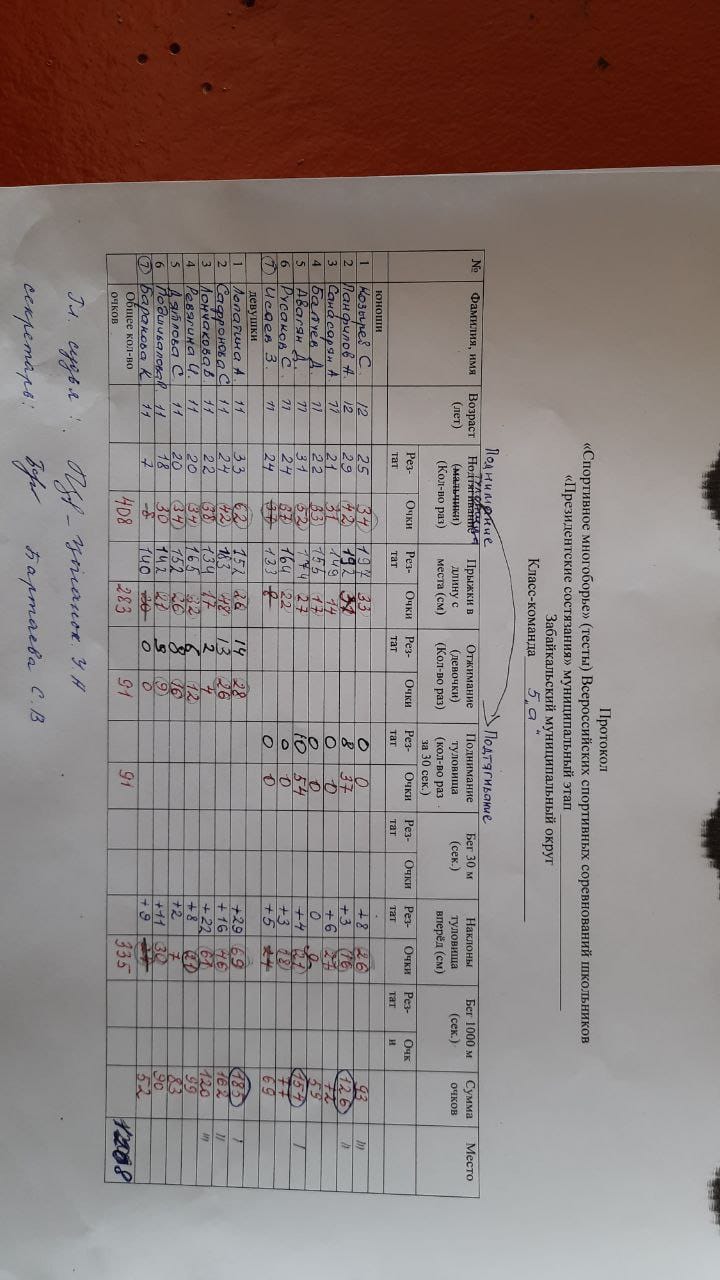 Протокол
«Спортивное многоборье» (тесты) Всероссийских спортивных соревнований школьников
«Президентские состязания» муниципальный этап
Забайкальский муниципальный округ
Класс-команда 5 „а“
Поднимание туловища Подтягивание
№ Фамилия, имя Возраст (лет) Подтягивание (мальчики) (Кол-во раз) Прыжки в длину с места (см) Отжимание (девочки) (Кол-во раз) Поднимание туловища (кол-во раз за 30 сек.) Бег 30 м (сек.) Наклоны туловища вперёд (см) Бег 1000 м (сек.) Сумма очков Место
Рез-тат Очки Рез-тат Очки Рез-тат Очки Рез-тат Очки Рез-тат Очки Рез-тат Очки Рез-тат Очки
юноши
1 Козырев С. 12 25 34 197 33 0 0 +8 26 93 III
2 Панфилов А. 12 29 42 192 31 8 37 +3 16 126 II
3 Санасарян А. 11 21 31 149 14 0 0 +6 27 72
4 Балуев Д. 11 22 33 155 17 0 0 0 9 59
5 Авагян Д. 11 31 52 174 27 10 54 +4 21 154 I
6 Русаков С. 11 24 37 164 22 0 0 +3 18 77
7 Исаев З. 11 24 37 133 8 0 0 +5 24 69
девушки
1 Лопатина А. 11 33 62 152 26 14 28 +29 69 185 I
2 Сафронова С 11 24 42 183 48 13 26 +16 46 162 II
3 Лончакова В. 11 22 38 134 17 2 4 +22 61 120 III
4 Ревягина И. 11 20 34 165 32 6 12 +8 21 99
5 Дятлова С. 11 20 34 152 26 8 16 +2 7 83
6 11 18 30 142 21 5 9 +11 30 90
7 Баранова К. 11 7 8 140 20 0 0 +9 52
Общее кол-во очков 408 283 91 91 335 1208
Гл. судья:
секретарь: Бартаева С.В